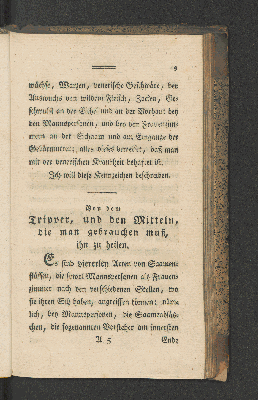 9
wächse, Warzen, venerische Geschwäre, der
Auswuchs von wildem Fleisch, Zacken, Ge-
schwulst an der Eichel und an der Vorhaut bey
den Mannspersonen, und bey den Frauenzim-
mern an der Schaam und am Eingange der
Gebärmutter; alles dieses beweiset, daß man
mit der venerischen Krankheit behaftet ist.
Ich will diese Kennzeichen beschreiben.
Von dem
Tripper, und den Mitteln,
die man gebrauchen muß,
ihn zu heilen.
Es sind viererley Arten von Saamen-
flüssen, die sowol Mannspersonen als Frauen-
zimmer nach den verschiedenen Stellen, wo
sie ihren Sitz haben, angreifen können: näm-
lich, bey Mannspersonen, die Saamenbläs-
chen, die sogenannten Vorsteher am innersten
A 5 Ende